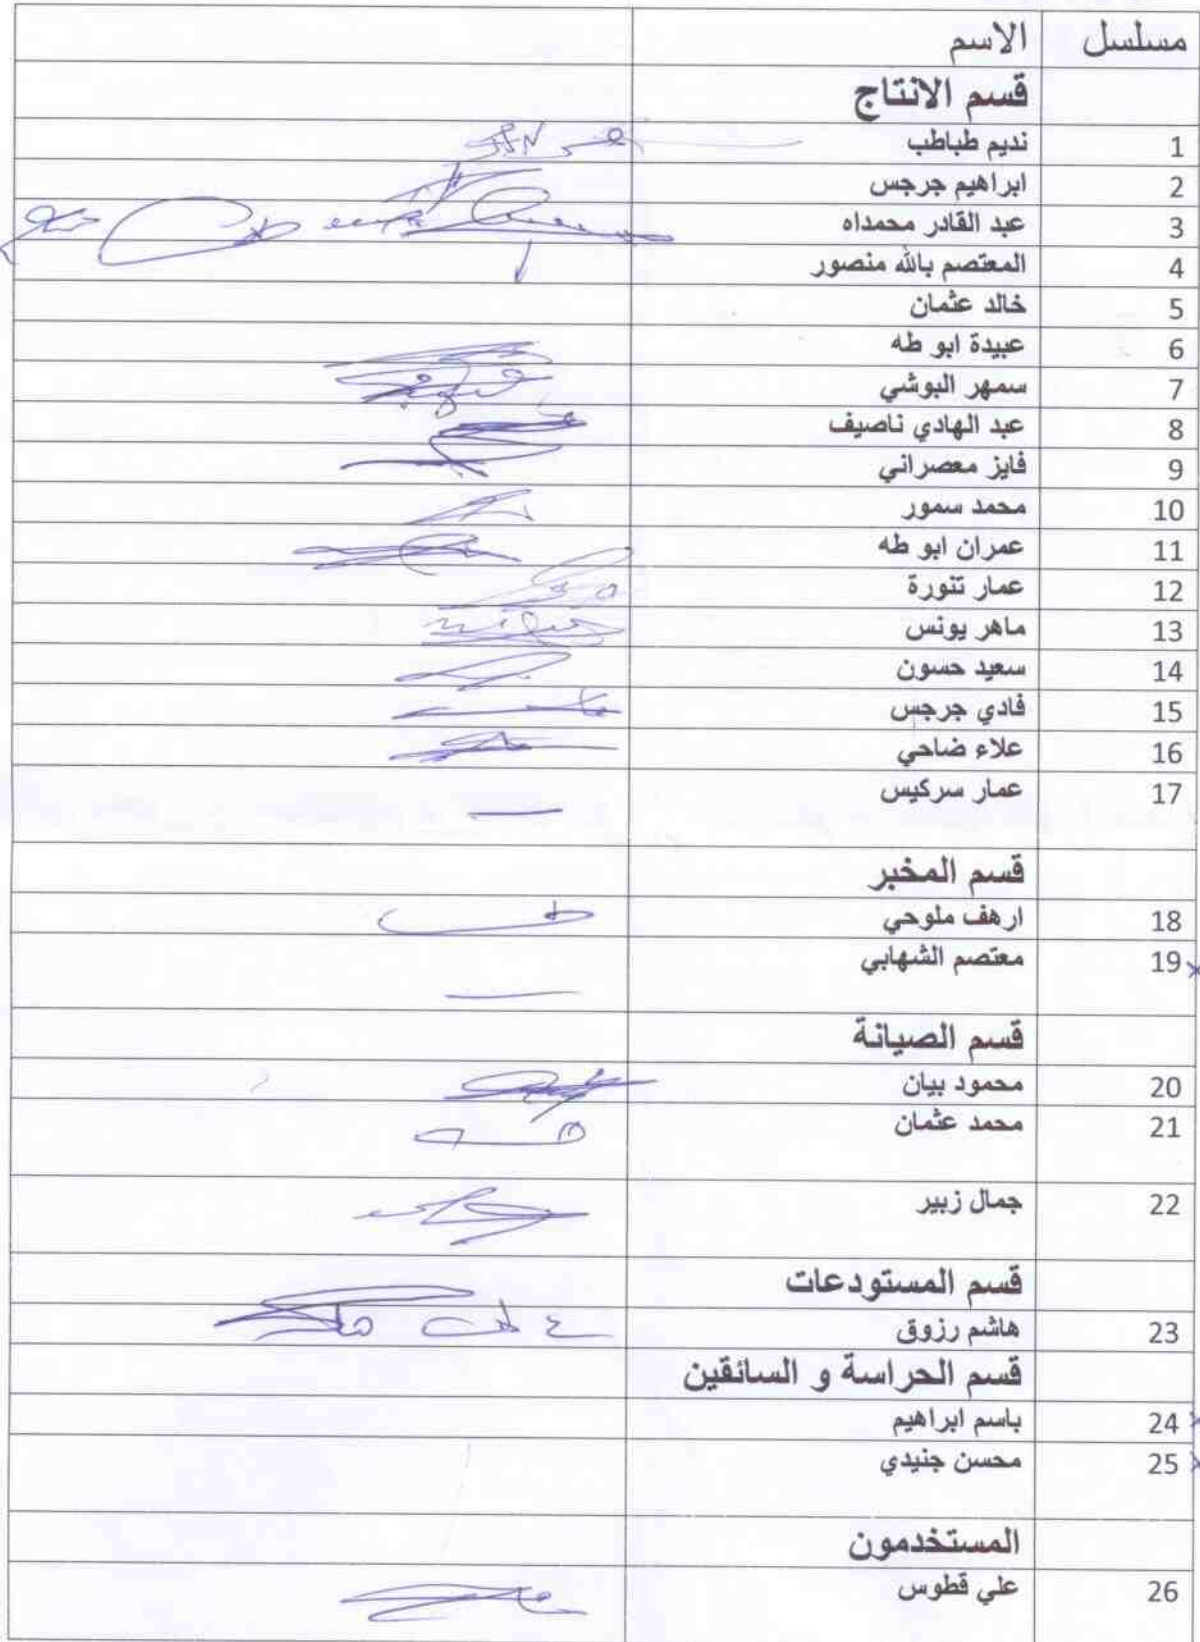 مسلسل الاسم
قسم الانتاج
1 نديم طباطب
2 ابراهيم جرجس
3 عبد القادر محمداه
4 المعتصم بالله منصور
5 خالد عثمان
6 عبيدة ابو طه
7 سمهر البوشي
8 عبد الهادي ناصيف
9 فايز معصراني
10 محمد سمور
11 عمران ابو طه
12 عمار تنورة
13 ماهر يونس
14 سعيد حسون
15 فادي جرجس
16 علاء ضاحي
17 عمار سركيس
قسم المخبر
18 ارهف ملوحي
19 معتصم الشهابي
قسم الصيانة
20 محمود بيان
21 محمد عثمان
22 جمال زبير
قسم المستودعات
23 هاشم رزوق
قسم الحراسة و السائقين
24 باسم ابراهيم
25 محسن جنيدي
المستخدمون
26 علي قطوس